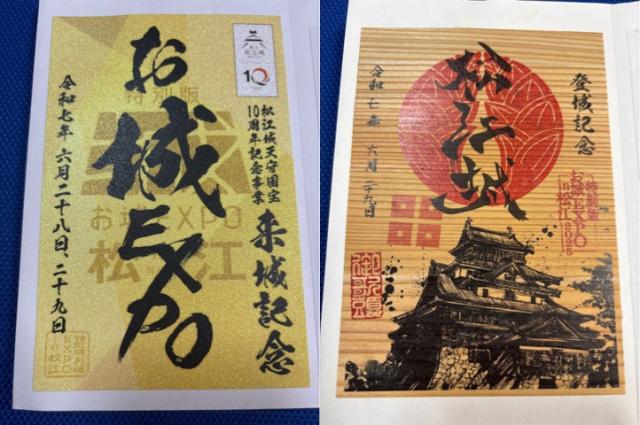 松江城天守国宝
10周年記念事業
来城記念
お城EXPO
特別版
お城EXPO
松江
令和七年 六月二十八日、二十九日
10
登城記念
特別版
お城EXPO
in松江
2025
松江城
令和七年 六月二九日